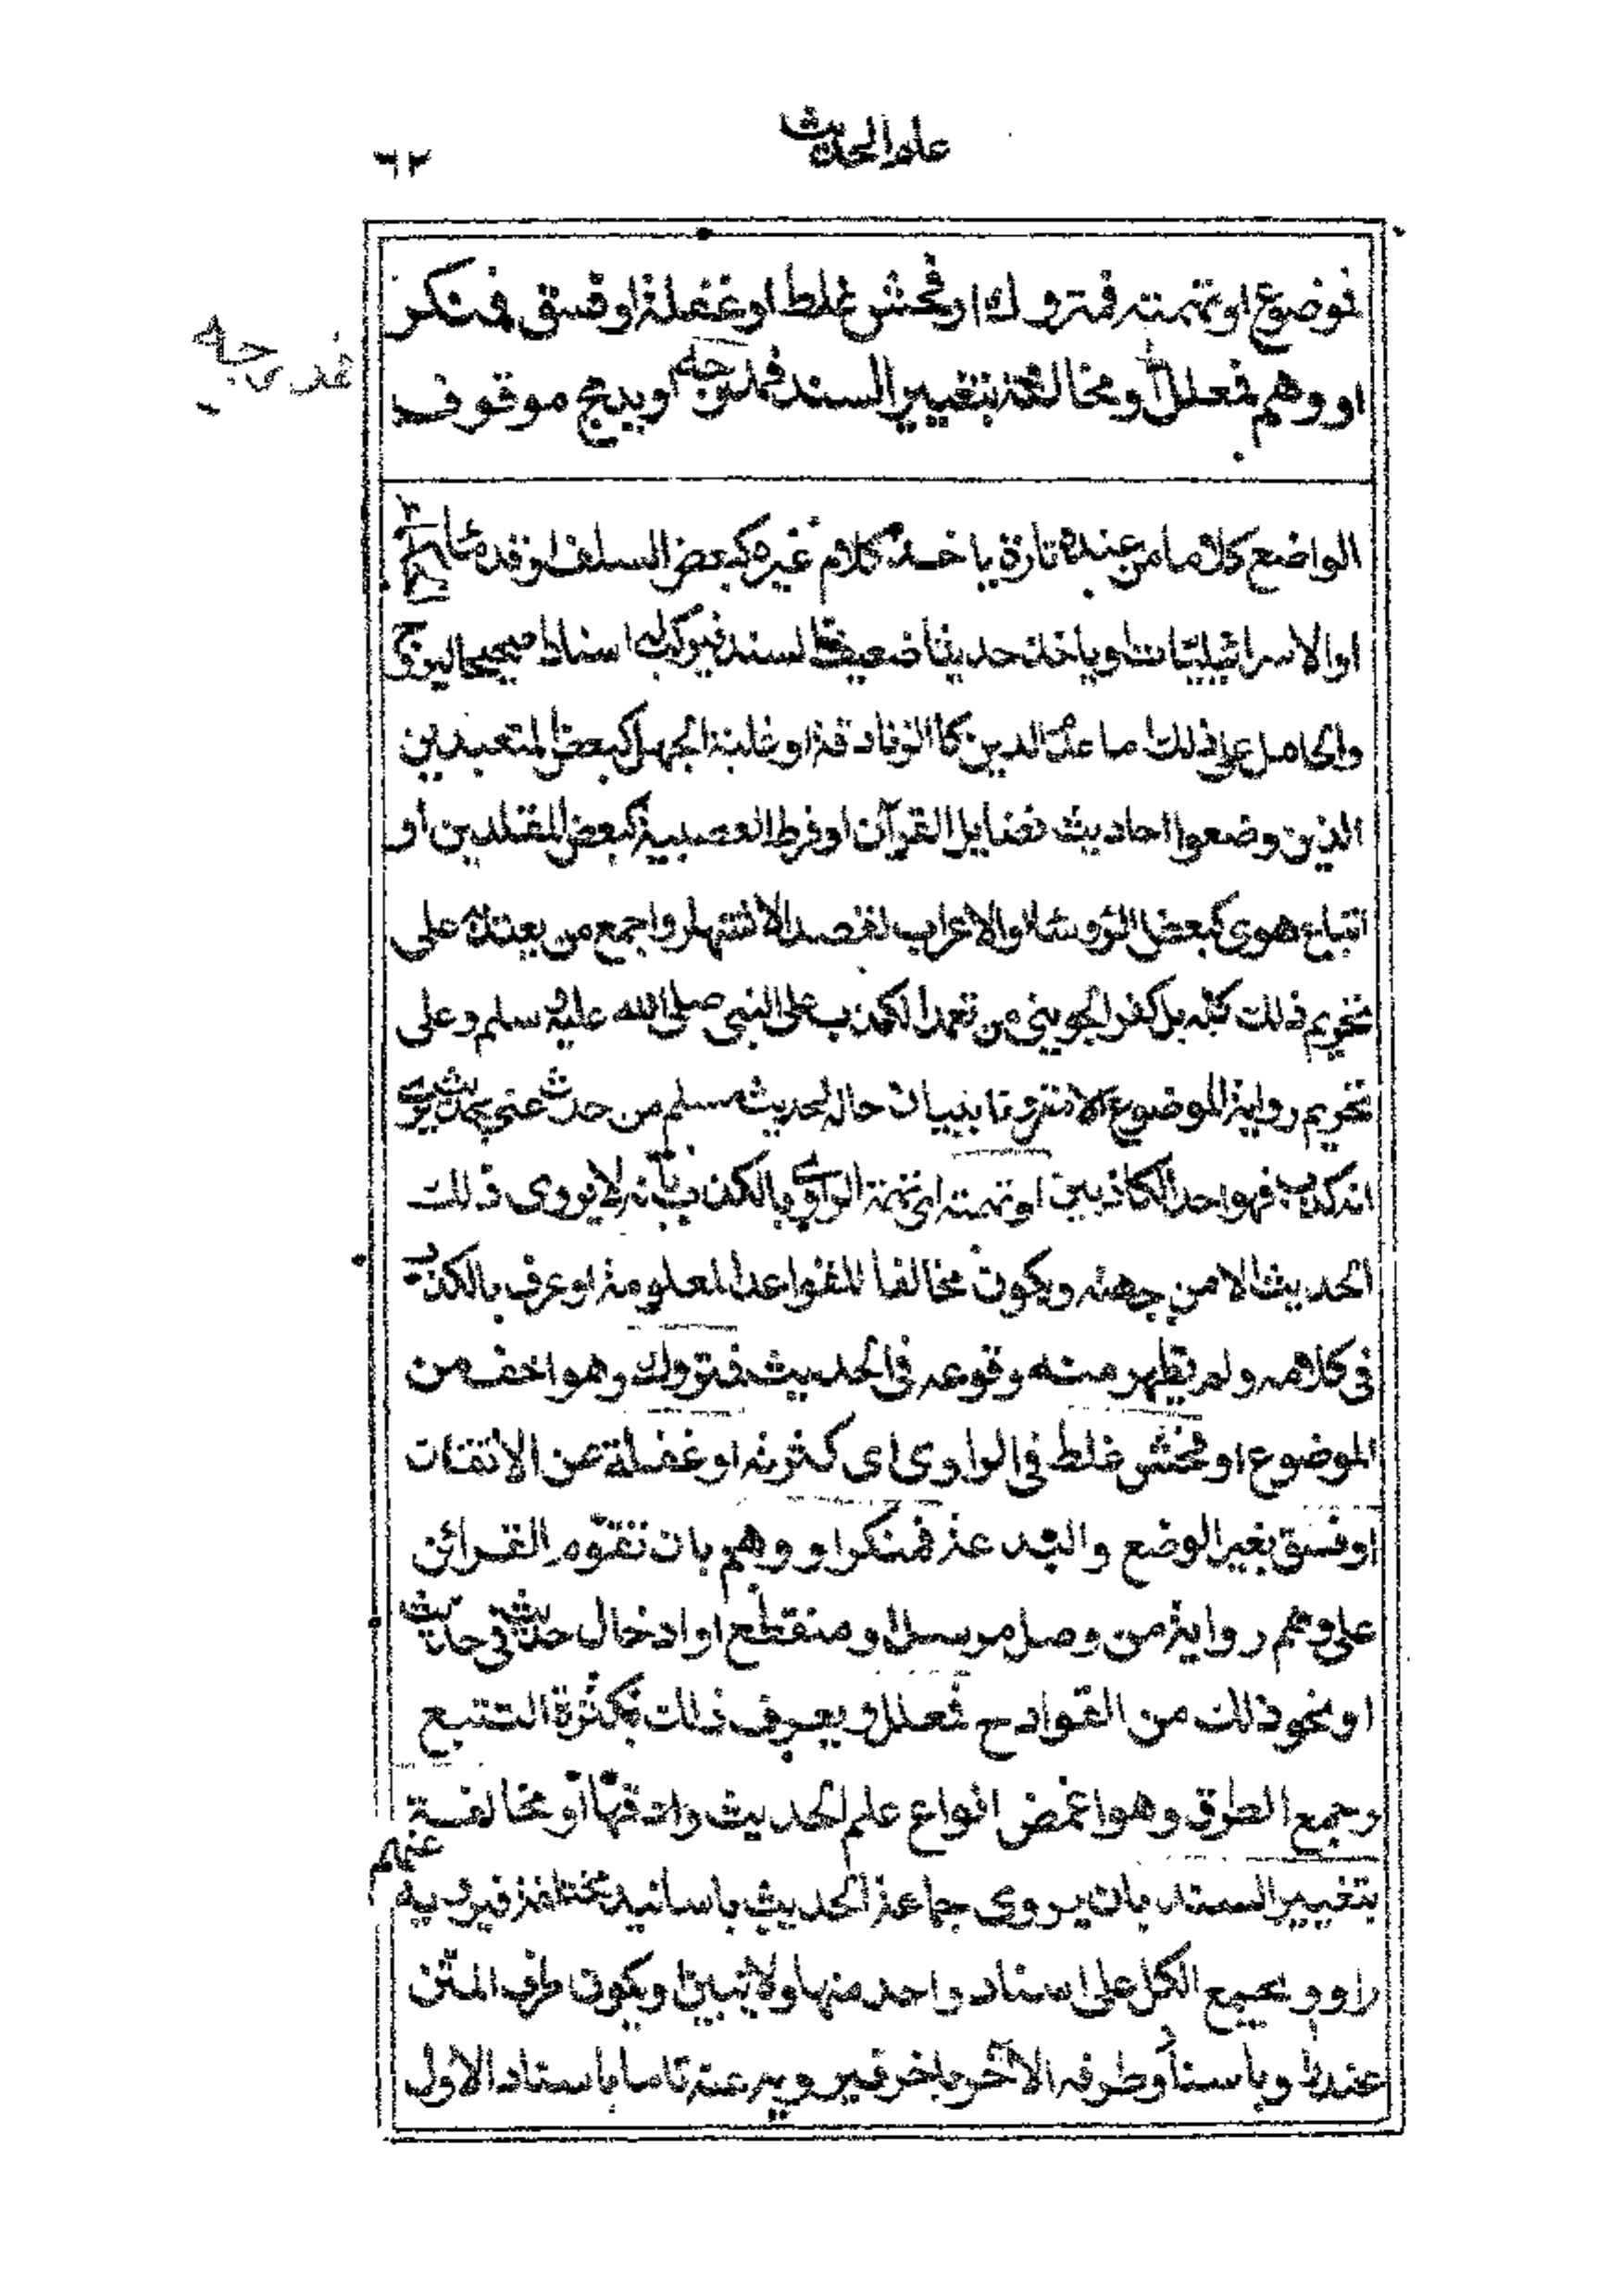 علم الحديث
٦٢
فوضوع او تهمته فتروك او فحش غلط او غفلة او فسق فمنكر
او وهم فمعلل او مخالفة بتغيير السند فمدرجه او بدمج موقوف
فمدرجه
الواضع كلاما من عنده تارة ياخذ كلام غيره كبعض السلف او قدماء
او الاسرائيليات او ياخذ حديثا ضعيف السند فيركب له اسنادا صحيحا ليروج
والحامل على ذلك اما عدم الدين كالزنادقة او غلبة الجهل كبعض المتعبدين
الذين وضعوا احاديث فضايل القرآن او فرط العصبية كبعض المقلدين او
اتباع هوى كبعض الرؤساء او الاغراب لقصد الاشتهار واجمع من يعتد به على
تحريم ذلك كله بل كفر الجويني من تعمد الكذب على النبي صلى الله عليه وسلم وعلى
تحريم رواية الموضوع الا مقرونا ببيان حاله لحديث مسلم من حدث عني بحديث يرى
انه كذب فهو احد الكاذبين او تهمته اي تهمة الراوي بالكذب بانه لا يروى ذلك
الحديث الا من جهته ويكون مخالفا للقواعد المعلومة او عرف بالكذب
في كلامه ولم يظهر منه وقوعه في الحديث فتروك وهو اخف من
الموضوع او فحش غلط في الراوي اى كثرته او غفلة عن الاتقان
او فسق بغير الوضع والبدعة فمنكر او وهم بان تقوم القرائن
على وهم رواية من وصل مرسل او منقطع او ادخال حديث في حديث
او نحو ذلك من القوادح فمعلل ويعرف ذلك بكثرة التتبع
وجمع الطرق وهو اغمض انواع علم الحديث وادقها او مخالفة
بتغيير السند بان يروى جماعة الحديث باسانيد مختلفة فيرويه عنهم
راو ويجمع الكل على اسناد واحد منها ولا يبين او يكون طرف المتن
عند راو باسناد وطرفه الآخر باخر فيرويه عنه تاما باسناد الاول